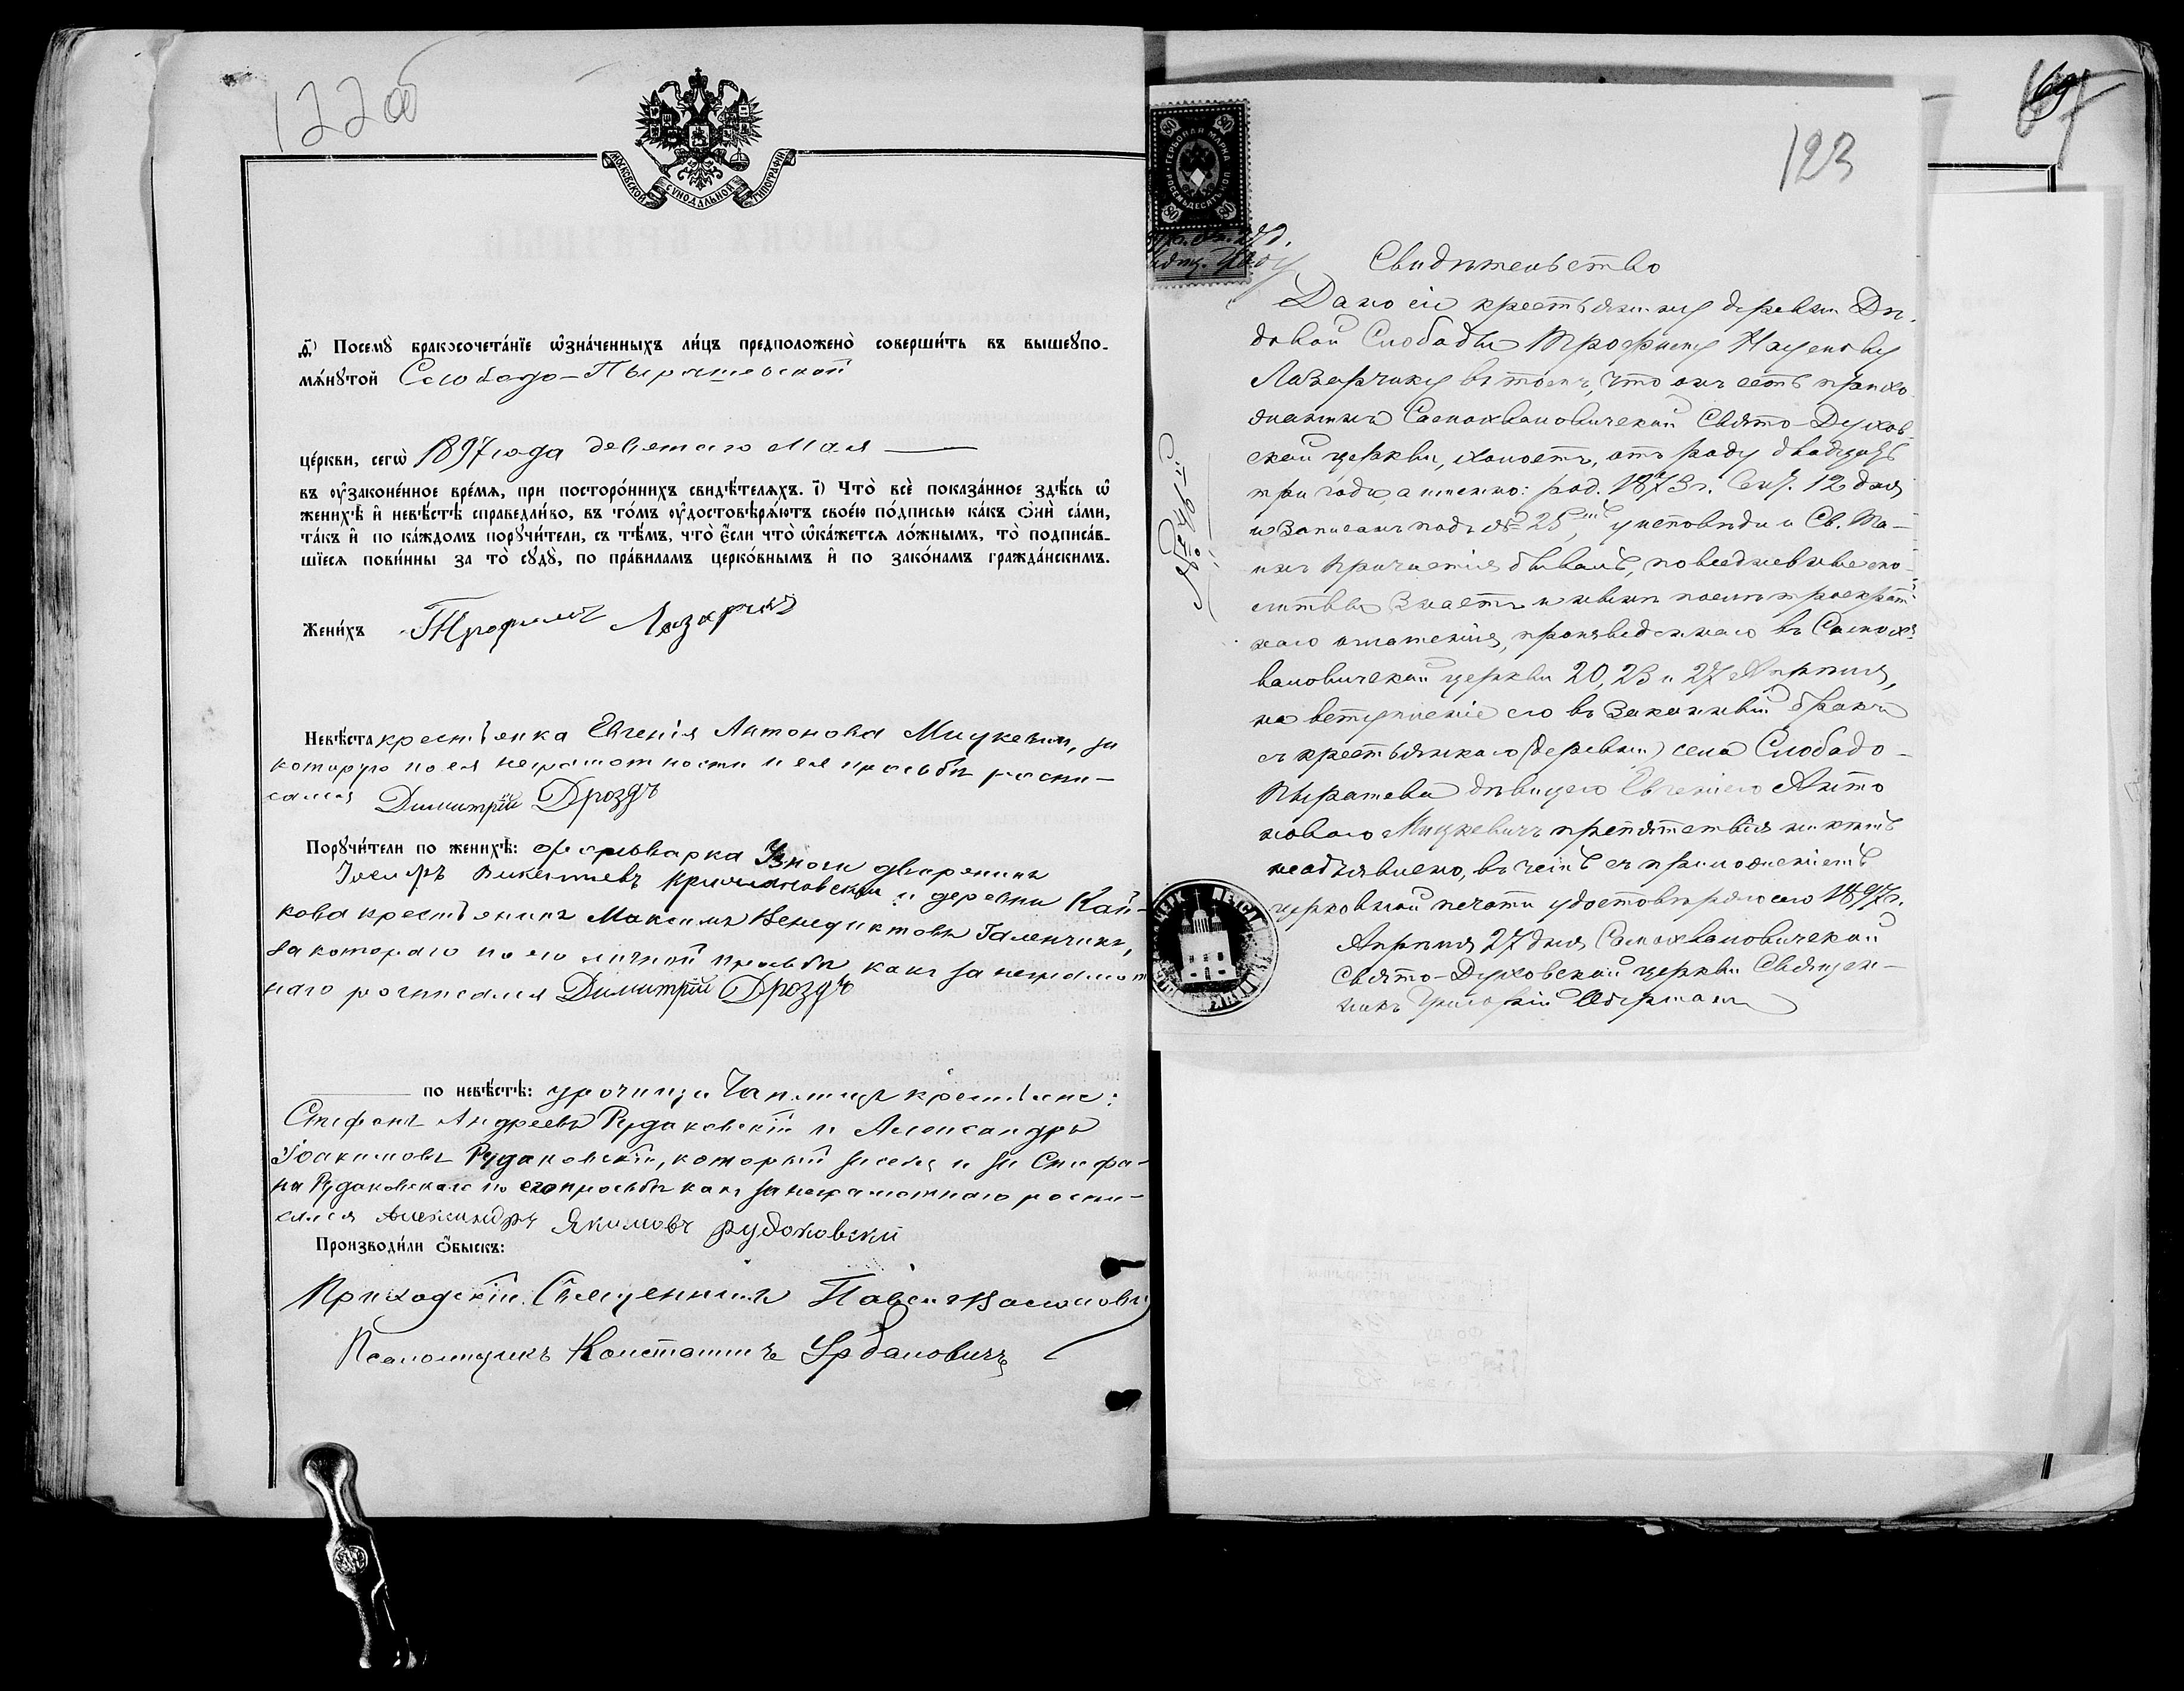 122об
МОСКОВСКОЙ СѴНОДАЛЬНОЙ ТИПОГРАФІИ
д҃) Посемꙋ̀ бракосочета́нїе ѡ҆зна́ченныхъ ли́цъ предположено̀ соверши́ть въ вышеꙋпо-
мѧ́нꙋтой Слободо-Пырашевской
це́ркви, сегѡ̀ 1897 года девятаго Мая
въ ᲂу҆зако́ненное вре́мѧ, при посторо́ннихъ свидѣ́телѧхъ. і҃) Что̀ всѐ пока́занное здѣ́сь ѡ҆
женихѣ̀ и҆ невѣ́стѣ справедли́во, въ то́мъ ᲂу҆достовѣрѧ́ютъ свое́ю по́дписью ка́къ ѻ҆нѝ са́ми,
та́къ и҆ по ка́ждомъ порꙋчи́тели, съ тѣ́мъ, что̀ є҆́сли что̀ ѡ҆ка́жетсѧ ло́жнымъ, то̀ подписа́в-
шїесѧ пови́нны за то̀ сꙋдꙋ̀, по пра́виламъ церко́внымъ и҆ по зако́намъ гражда́нскимъ.
Жени́хъ Трофимъ Лазарчик
Невѣ́ста крестьянка Евгенія Антонова Мицкевич, за
которую по ея неграмотности и ея просьбѣ роспи-
сался Димитрій Дроздъ
Порꙋчи́тели по женихѣ̀: фольварка Узноги дворянинъ
Іосифъ Викентьевъ и деревни Кай-
кова крестьянинъ Максимъ Венедиктовъ Галенчикъ,
за котораго по его личной просьбѣ какъ за неграмот
наго росписался Димитрій Дроздъ
по невѣ́стѣ: урочища крестьяне:
Стефанъ Андреевъ Рудаковскій и Александръ
Іоакимовъ Рудаковскій, который за себя и за Стефа-
на Рудаковскаго по его просьбѣ какъ за неграмотнаго роспи-
сался Александръ Якимовъ рудоковски
Производи́ли ѻ҆́быскъ:
Приходскій Священникъ Павелъ
Псаломщикъ Константинъ Урбановичъ
67
69
123
ГЕРБОВАЯ МАРКА
ВОСЕМЬДЕСЯТЪ КОП
80 80
80 80
Свидѣтельство
Дано сіе крестьянину деревни Дѣ-
довой Слободы Трофиму Наумову
Лазарчику въ томъ, что онъ есть прихо
жанинъ Самохваловичской Свято-Духов-
ской церкви, холостъ, отъ роду двадцать
три года, а именно: род. 1873 г. Сент. 12 дня
и записанъ подъ № 25, у исповѣди и Св. Та-
инъ Причастія бывалъ, повседневные мо-
литвы знаетъ и нынѣ послѣ троекрат-
наго оглашенія, произведеннаго въ Самох-
валовичской церкви 20, 23 и 27 Апрѣля,
на вступленіе его въ законный бракъ
съ крестьянкою (деревни) села Слободо-
Пырашева дѣвицею Евгеніею Анто
новою Мицкевичъ препятствія никѣмъ
необъявлено, въ чемъ съ приложеніемъ
церковной печати удостовѣряю сего 1897 г.
Апрѣля 27 дня Самохваловичской
Свято-Духовской церкви Священ-
никъ Григорій